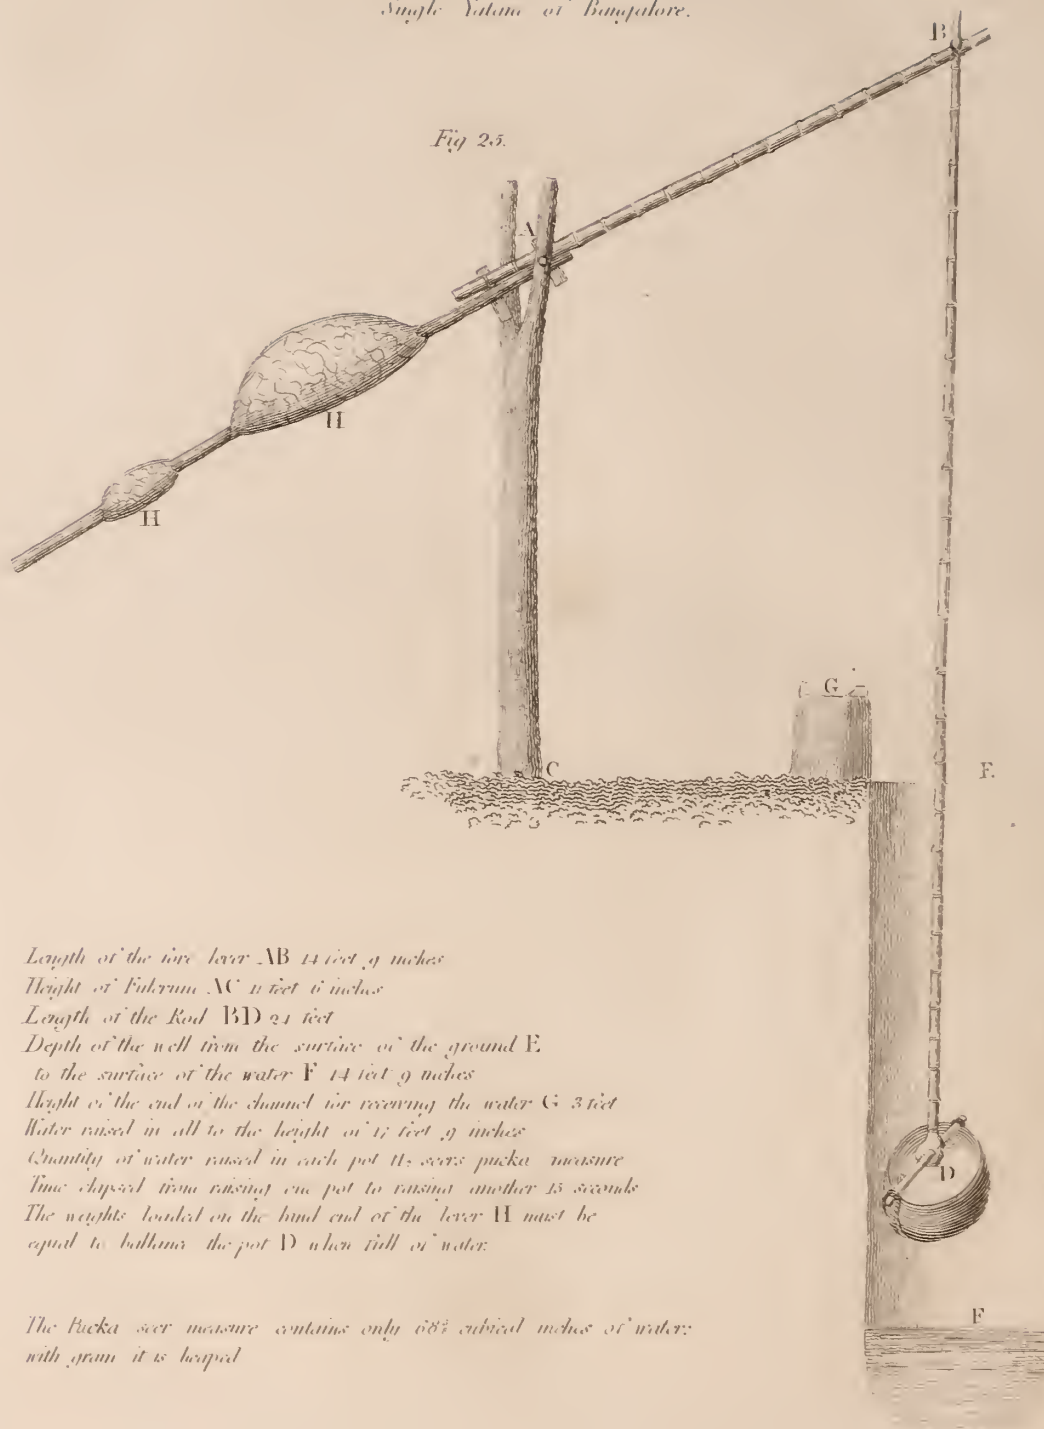 Single Yatam of Bangalore.
B
Fig 25.
A
H
H
G
C
E
Length of the fore lever AB 14 feet 9 inches
Height of Fulcrum AC 11 feet 6 inches
Length of the Rod BD 21 feet
Depth of the well from the surface of the ground E
to the surface of the water F 14 feet 9 inches
Height of the end of the channel for receiving the water G 3 feet
Water raised in all to the height of 17 feet 9 inches
Quantity of water raised in each pot seers pucka measure
Time elapsed from raising one pot to raising another 15 seconds
The weights loaded on the hind end of the lever H must be
equal to ballance the pot D when full of water.
D
F
The Pucka seer measure contains only cubical inches of water:
with grain it is heaped